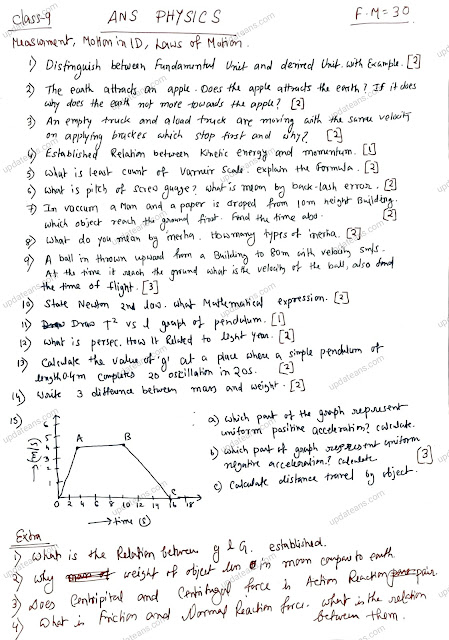 Class-9 ANS PHYSICS F.M=30
Measurment, Motion in 1D, Laws of Motion.
1) Distinguish between Fundamental Unit and derived Unit. with Example. [2]
2) The earth attracts an apple. Does the apple attracts the earth? If it does
why does the earth not move towards the apple? [2]
3) An empty truck and a load truck are moving with the same velocity
on applying brackes which stop first and why? [2]
4) Established Relation between Kinetic energy and momentum. [1]
5) What is least count of Varnier Scale. explain the formula. [2]
6) What is pitch of screw guage? what is mean by back-lash error. [2]
7) In vaccum a Man and a paper is droped from 10m height Building.
which object reach the ground first. Find the time also. [2]
8) What do you mean by inertia. How many types of inertia. [2]
9) A ball in thrown upward from a Building to 80m with velocity 5m/s.
At the time it reach the ground what is the velocity of the ball, also find
the time of flight. [3]
10) State Newton 2nd low. what Mathematical expression. [2]
11) Draw T² vs l graph of pendulum. [1]
12) What is persec. How it Related to light year. [2]
13) Calculate the value of 'g' at a place where a simple pendulum of
length 0.4m completes 20 oscillation in 20s. [2]
14) Write 3 difference between mass and weight. [2]
15)
a) which part of the graph represent
uniform positive acceleration? calculate.
b) which part of graph represent uniform
negative acceleration? calculate
[3]
c) Calculate distance travel by object.
6
5
4
3
2
1
A
B
C
0 2 4 6 8 10 12 14 16 18
→ time (s)
Extra
1) What is the Relation between g & G. established.
2) Why weight of object less in moon compare to earth.
3) Does Centripital and Centrifugal force is Action Reaction pair.
4) What is Friction and Normal Reaction force. what is the relation
between them.
updateans.com